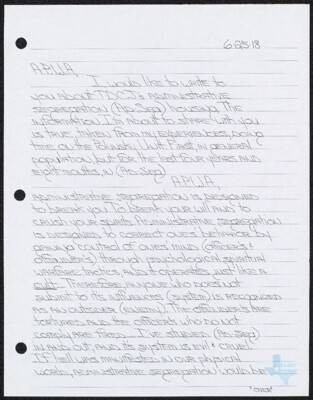 6-25-18
A.P.W.A,
I would like to write to
you about TDCJ's Administrative
segregation (Ad. Seg) housing. The
information I'm about to share with you
is true taken from my experiences, doing
time on the Polunsky Unit. First, in general
population but for the last four years and
eight months, in (Ad. Seg)
A.P.W.A,
Administrative segregation is designed
to break you. To break your will and to
crush your spirit. Administrative segregation
is designed to correct ones behavior by
gaining control of ones mind (officer's &
offender's) through psychological spiritual
warfare tactics, and it operates just like a
cult. Therefore anyone who does not
submit to its influences (system) is recognized
as an outsider (enemy). The offender's are
tortured and the officers who do not
comply are fired. I've studied (Ad. Seg)
in and out, and its system is evil & cruel!
If hell was manifested in our physical
world, administrative segregation would be
"over"